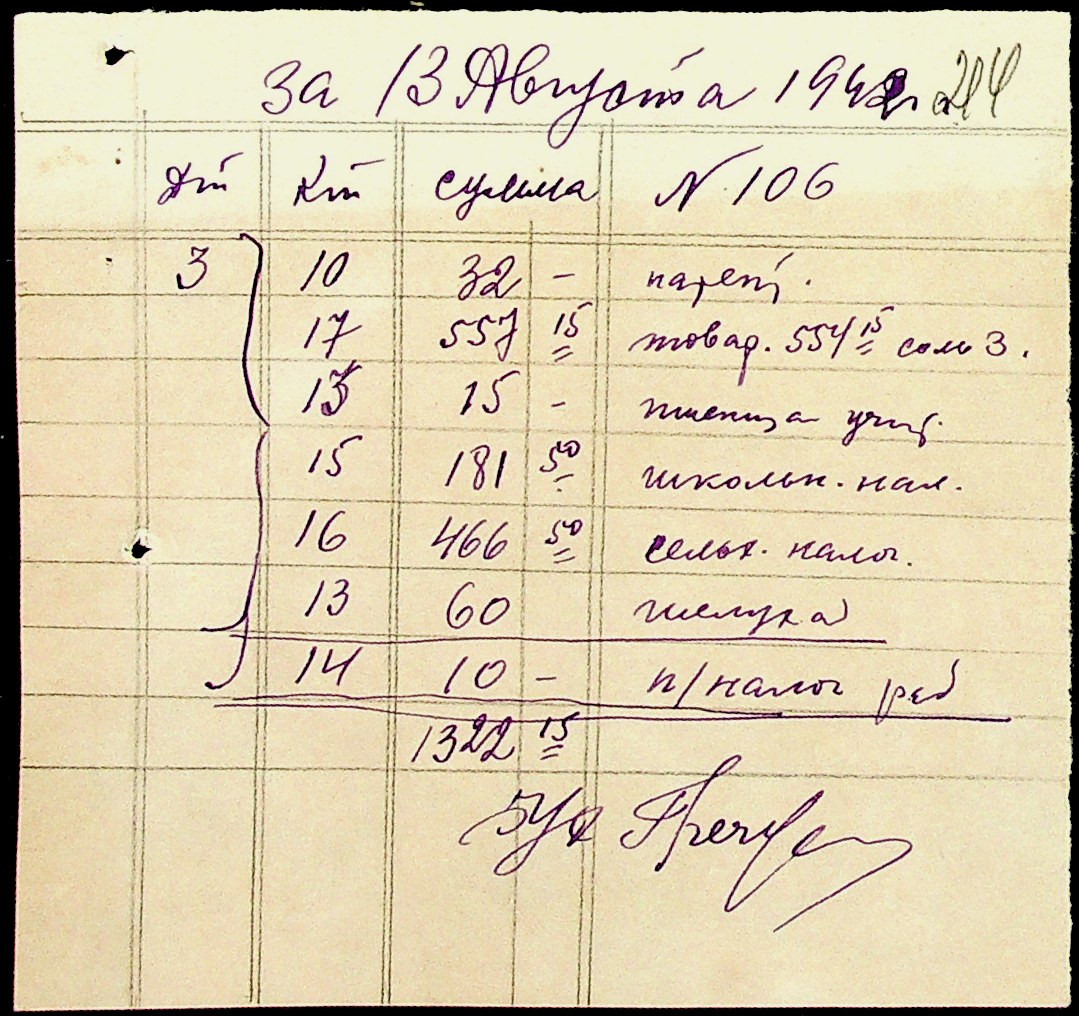 за 13 Августа 1942 г. 214
Дт Кт сумма N 106
3 10 32 – патент.
17 557 15 товар. 554 15 соль 3.
13 15 – пшеница
15 181 50 школьн. нал.
16 466 50 сельх. налог.
13 60 шелуха
14 10 – п/налог
1322 15
Бух